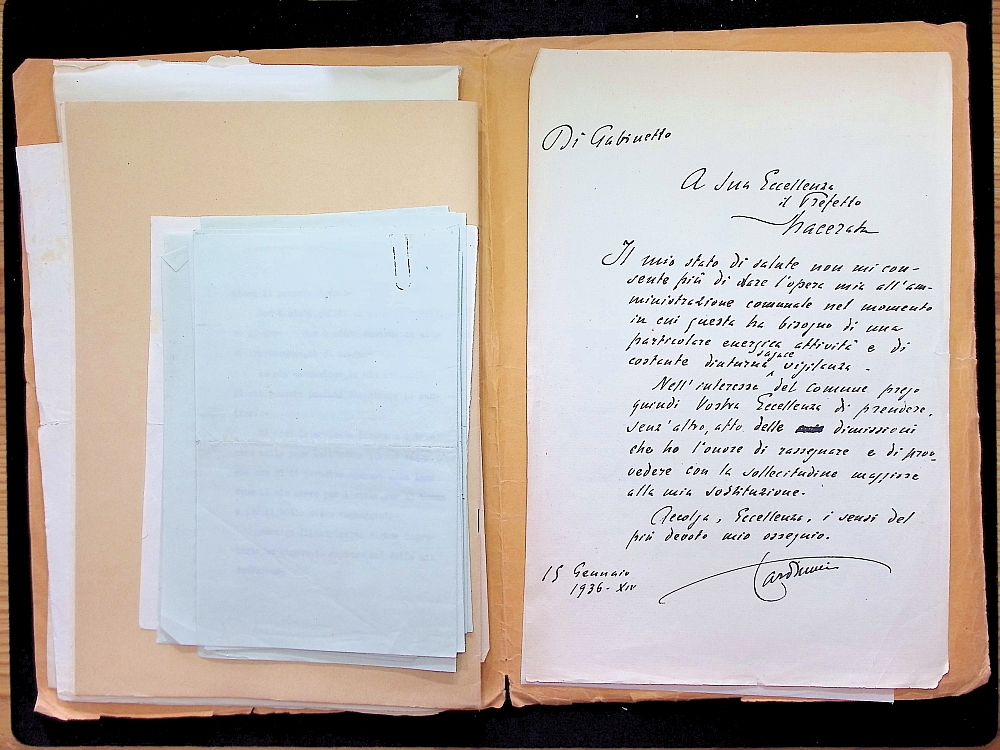 Di Gabinetto
A Sua Eccellenza
il Prefetto
Macerata
Il mio stato di salute non mi con-
sente più di dare l'opera mia all'am-
ministrazione comunale nel momento
in cui questa ha bisogno di una
particolare energica attività e di
costante diuturna sagace vigilanza.
Nell'interesse del Comune prego
quindi Vostra Eccellenza di prendere,
senz'altro, atto delle dimissioni
che ho l'onore di rassegnare e di prov-
vedere con la sollecitudine maggiore
alla mia sostituzione.
Accolga, Eccellenza, i sensi del
più devoto mio ossequio.
15 Gennaio
1936-XIV